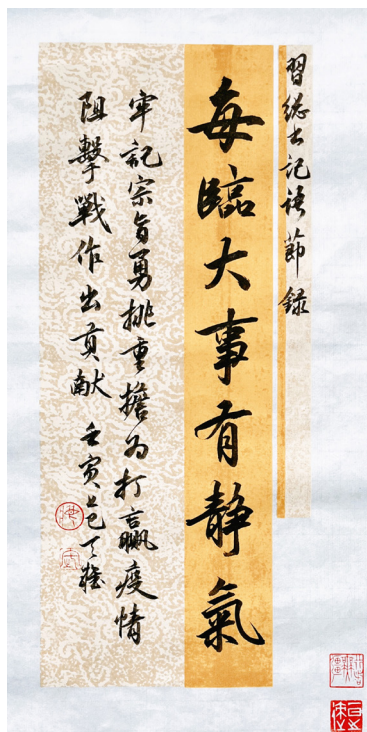 習總書記语節錄
每臨大事有静氣
牢記宗旨勇挑重擔为打贏疫情
阻擊戰作出貢献 壬寅上巳